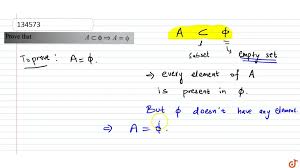 134573
Prove that A ⊂ Φ ⇒ A = Φ
To prove : A = Φ.
A ⊂ Φ
subset
Empty set
→ every element of A
is present in Φ.
But Φ doesn't have any element
⇒ A = Φ.